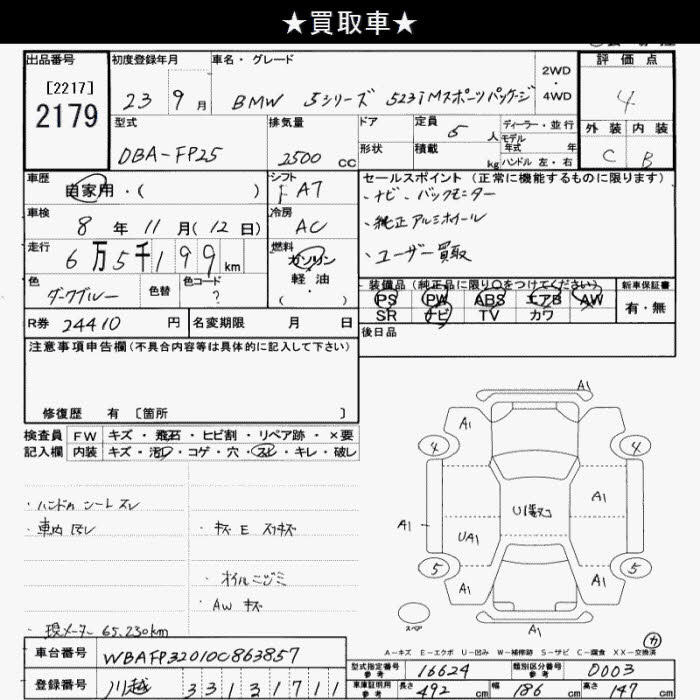 ★買取車★
出品番号
[2217]
2179
初度登録年月
23 9月
車名・グレード
BMW 5シリーズ 523iMスポーツパッケージ
2WD
・
4WD
評価点
4
外装 内装
C B
型式
DBA-FP25
排気量
2500 cc
ドア
形状
定員
5人
積載
kg
ディーラー・並行
モデル
年式 年
ハンドル 左・右
車歴
自家用・( )
シフト
FAT
車検
8年11月(12日)
冷房
AC
走行
6万5千199km
燃料
ガソリン
軽油
( )
色
ダークブルー
色替
色コード
?
R券 24410円
名変期限 月 日
セールスポイント(正常に機能するものに限ります)
・ナビ、バックモニター
・純正アルミホイール
・ユーザー買取
装備品(純正品に限り○をつけてください)
PS PW ABS エアB AW
SR ナビ TV カワ
新車保証書
有・無
後日品
注意事項申告欄(不具合内容等は具体的に記入して下さい)
修復歴 有 [箇所 ]
検査員
記入欄
FW キズ・飛石・ヒビ割・リペア跡・×要
内装 キズ・汚れ・コゲ・穴・スレ・キレ・破レ
・ハンドル シートスレ
・車内 スレ
・キズ E スリキズ
・オイルニジミ
・AW キズ
・現メーター 65,230km
A1
A1
4
4
A1
A1
U1
UA1
5
5
A1
A1
A1
スペア
カ
A-キズ E-エクボ U-凹み W-補修跡 S-サビ C-腐食 XX-交換済
車台番号 WBAFP32010C863857
登録番号 川越 331 ろ 1711
型式指定番号
参考
16624
類別区分番号
参考
0003
車庫証明用
参考
長さ 492 cm
幅 186 cm
高さ 147 cm